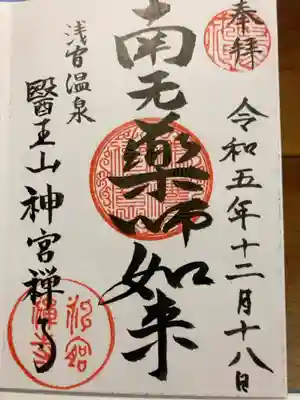 奉拝
令和五年十二月十八日
南无薬師如来
浅間温泉
醫王山神宮禅寺